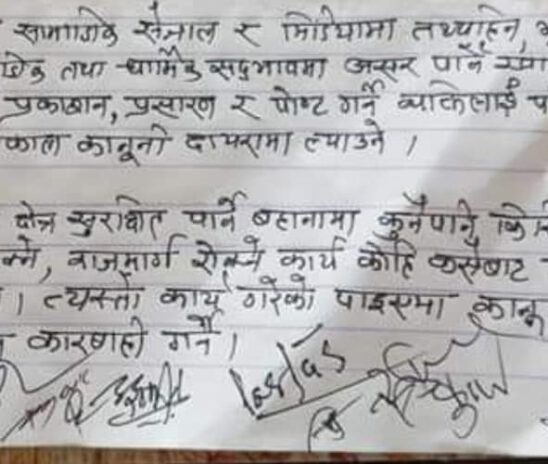 सामाजिक सञ्जाल र मिडियामा तथ्यहिन,
तथा धार्मिक सद्भावमा असर पार्ने
प्रकाशन, प्रसारण र पोष्ट गर्ने व्यक्तिलाई
कानूनी दायरामा ल्याउने ।
क्षेत्र सुरक्षित पार्ने बहानामा कुनैपनि
राजमार्ग रोक्ने कार्य कोहि कसैबाट
। त्यस्तो कार्य गरेको पाइएमा कानू
कारबाही गर्ने ।